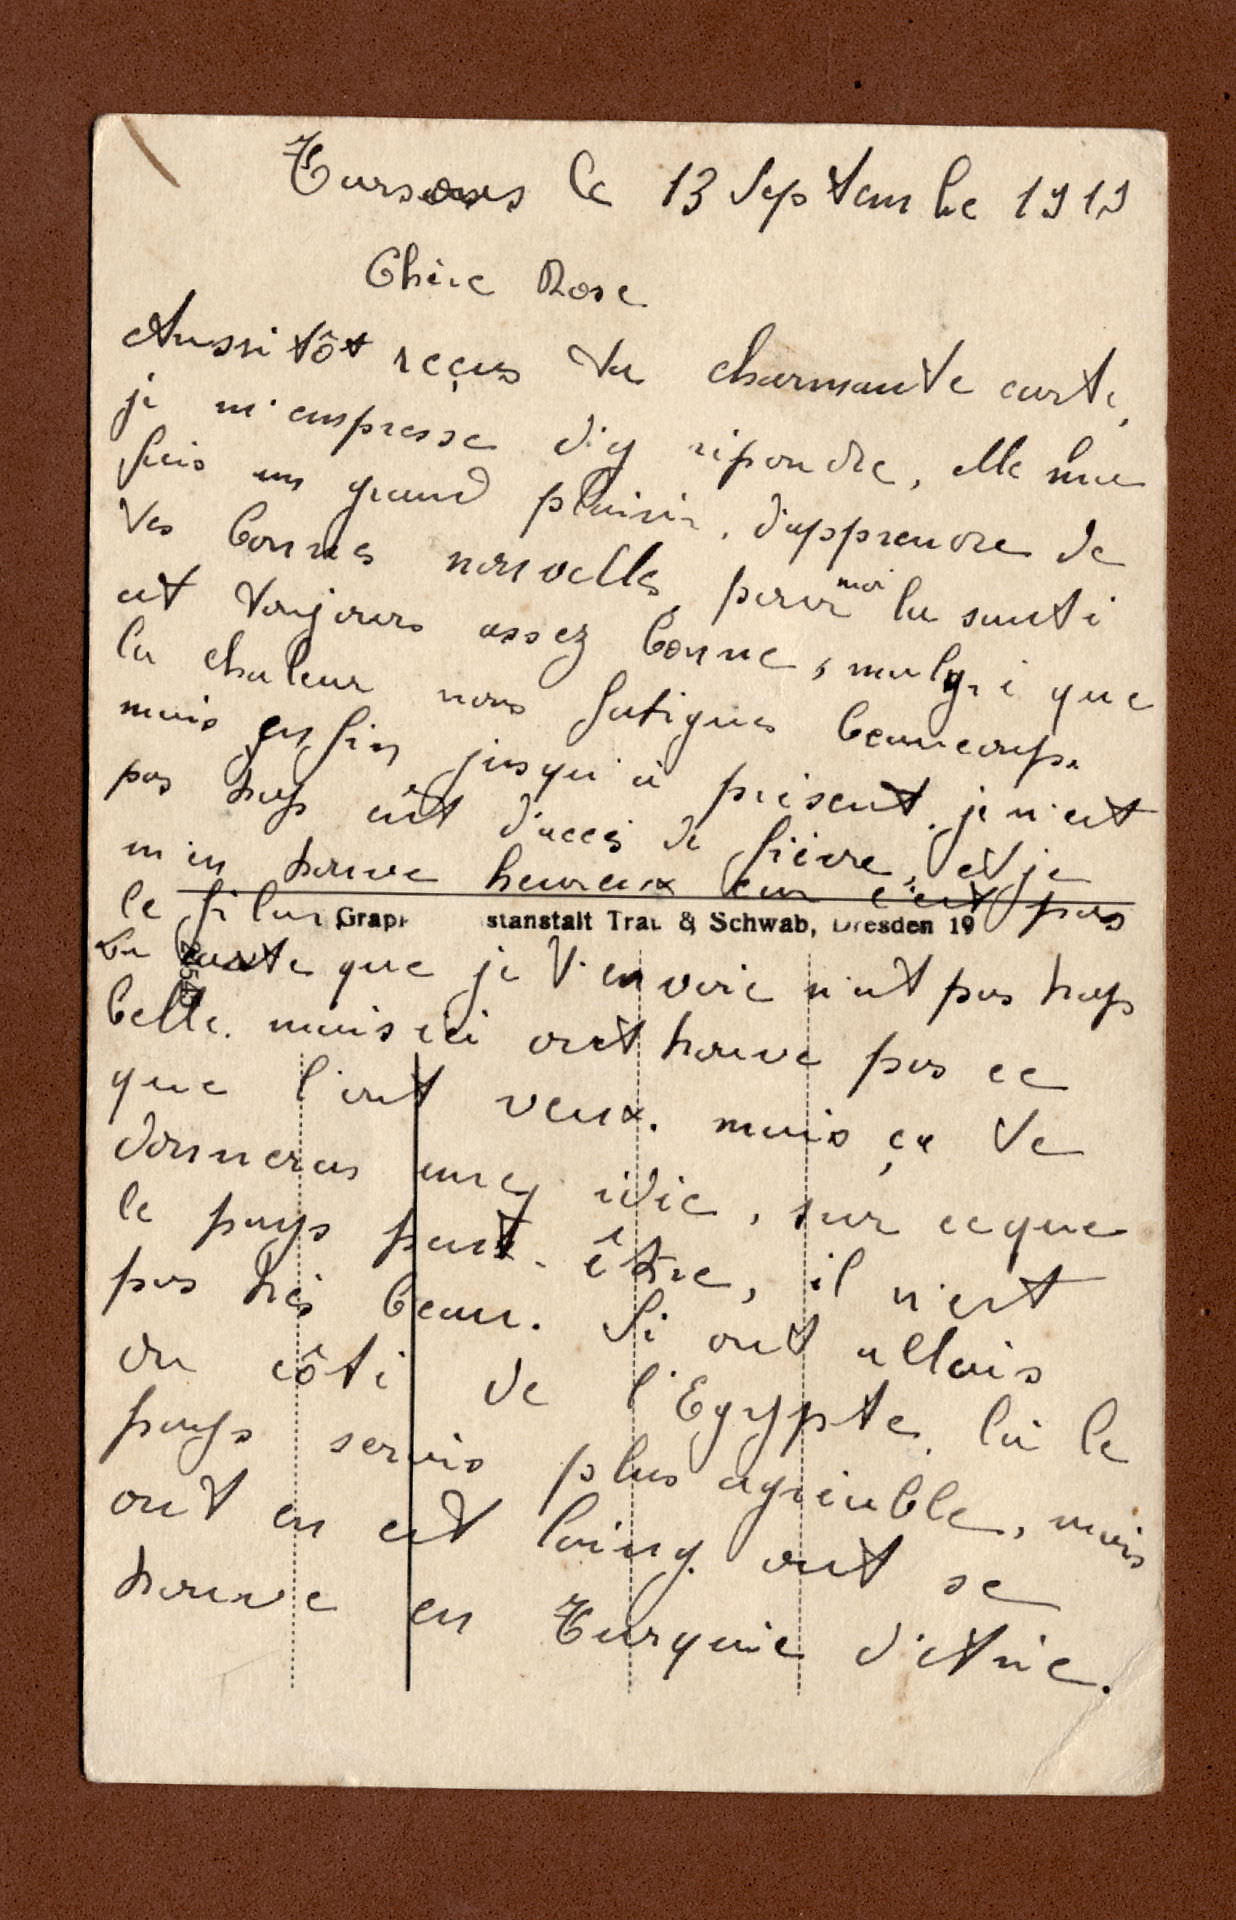 Tarsous le 13 Septembre 1919
Chère Rose
Aussitôt reçus ta charmante carte,
je m'empresse d'y répondre, elle me
fais un grand plaisir, d'apprendre de
tes bonnes nouvelles, pour moi la santé
est toujours assez bonne, malgré que
la chaleur nous fatigues beaucoup.
mais enfin jusqu'à présent, je n'est
pas trop eût d'accés de fièvre, et je
m'en trouve heureux car c'est pas
le filon
Graph stanstalt Trau & Schwab, Dresden 19
La carte que je t'envoie n'est pas trop
belle. mais ici ont trouve pas ce
que l'ont veux. mais ça te
donneras une idée, sur ceque
le pays peut-être, il n'est
pas trés beau. Si ont allais
du côté de l'Egypte, là le
pays serais plus agréable, mais
ont en est loing. ont se
trouve en Turquie d'Asie.